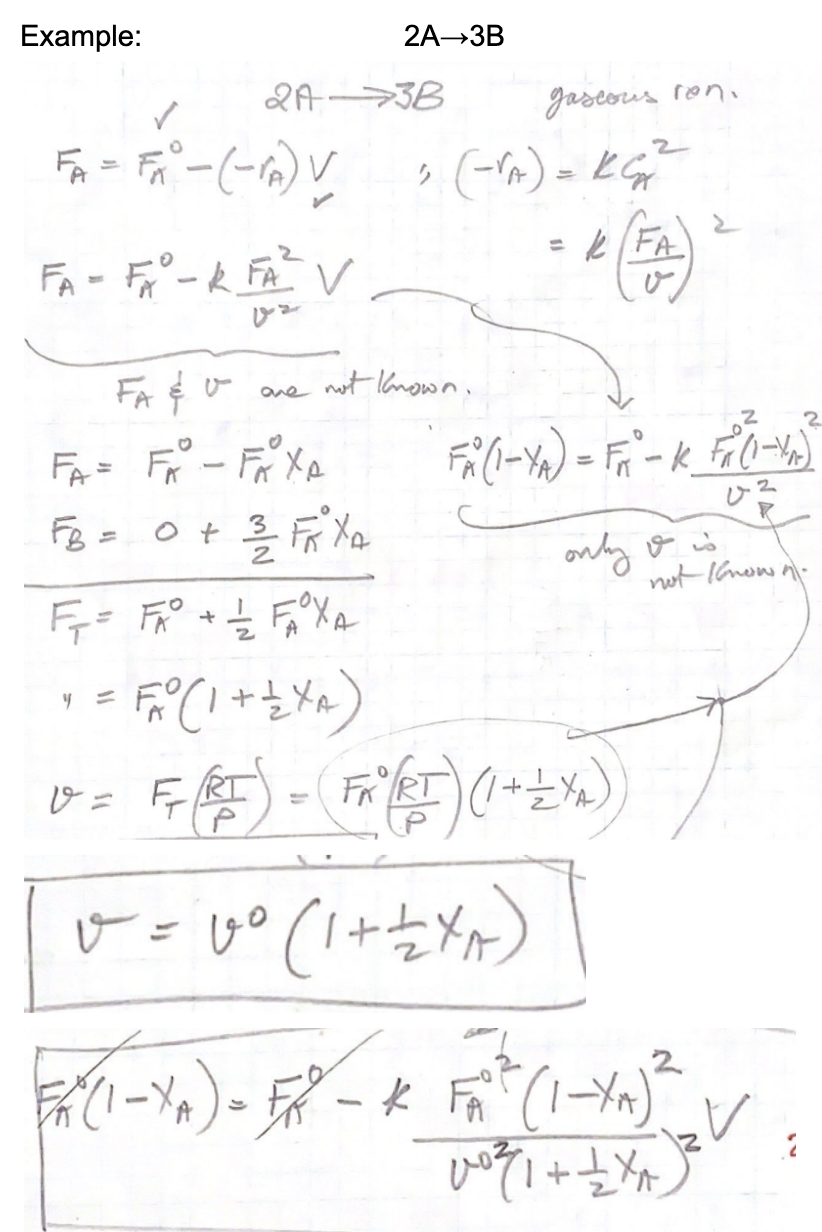 Example: 2A→3B
2A ⟶ 3B gaseous rxn.
✓
F_A = F_A^0 - (-r_A) V , (-r_A) = k C_A^2
✓
= k (F_A/v)^2
F_A = F_A^0 - k F_A^2/v^2 V
F_A & v are not known.
F_A = F_A^0 - F_A^0 X_A
F_A^0 (1-X_A) = F_A^0 - k F_A^0^2 (1-X_A)^2 / v^2
F_B = 0 + 3/2 F_A^0 X_A
only v is
not known.
F_T = F_A^0 + 1/2 F_A^0 X_A
" = F_A^0 (1 + 1/2 X_A)
v = F_T (RT/P) = F_A^0 (RT/P) (1 + 1/2 X_A)
v = v^0 (1 + 1/2 X_A)
F_A^0 (1-X_A) = F_A^0 - k F_A^0^2 (1-X_A)^2 / v^0^2 (1 + 1/2 X_A)^2 V